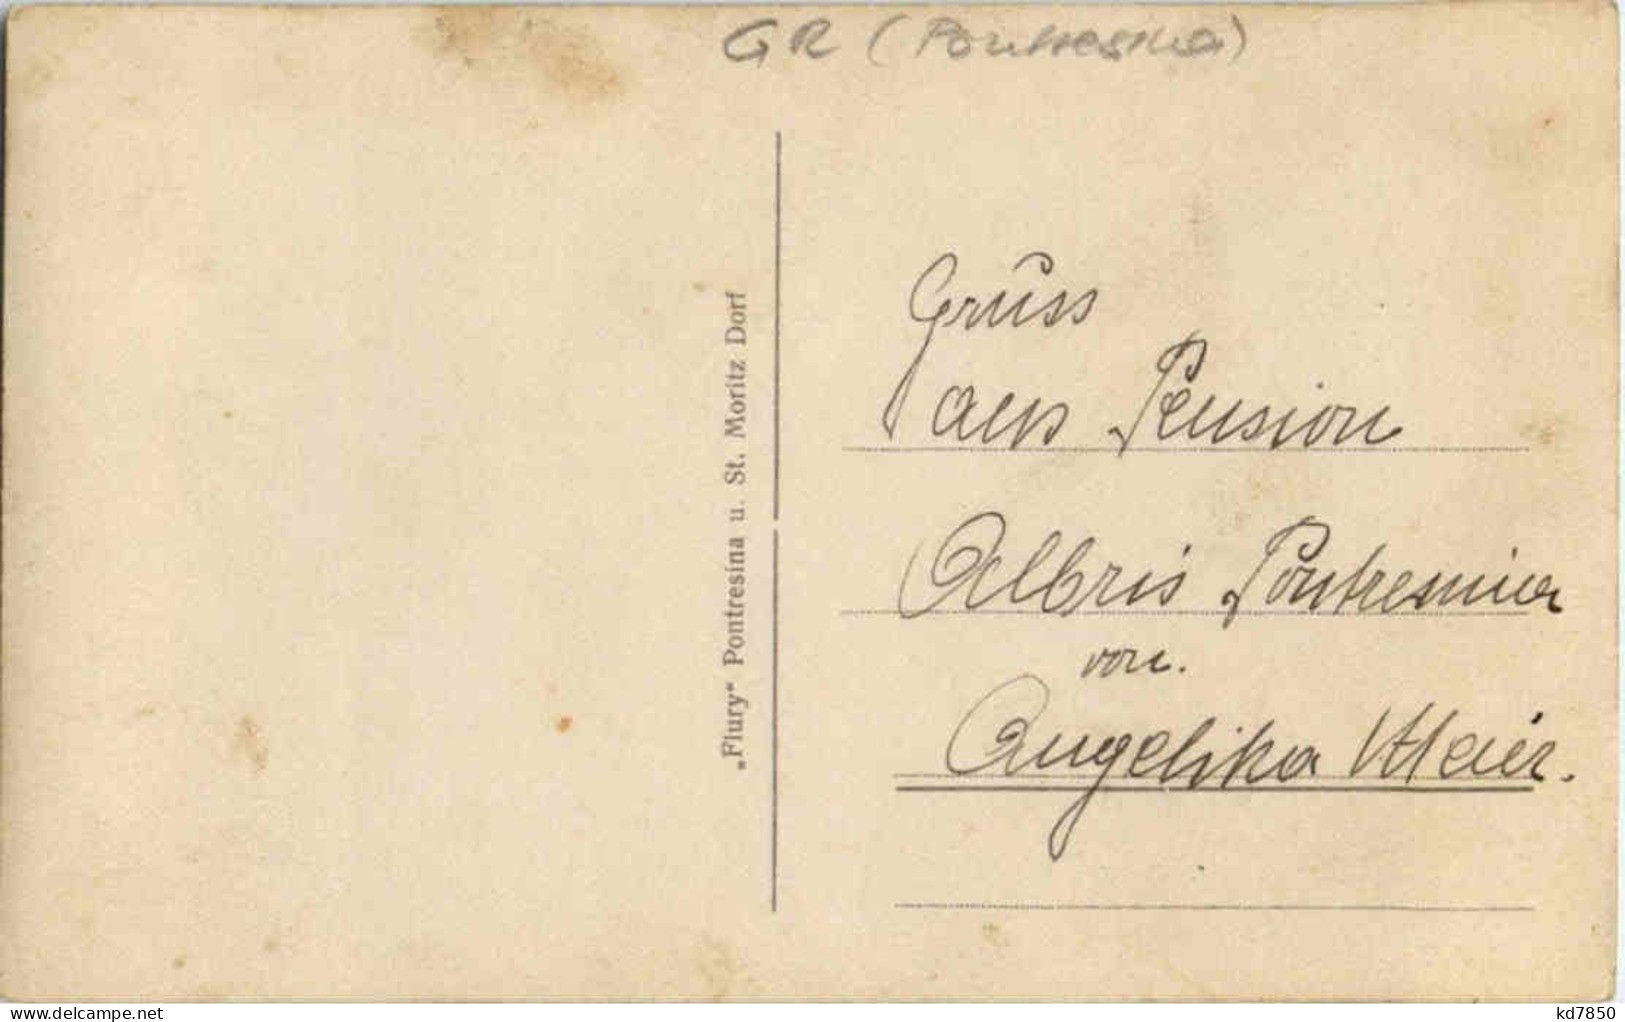 GR (Pontresina)
„Flury“ Pontresina u. St. Moritz Dorf
Grüss
aus Pension
Albris Pontresina
von.
Angelika Meier.
www.delcampe.net
kd7850